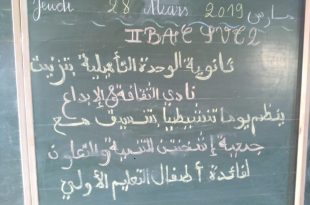 Jeudi 28 Mars 2019 مارس
II BAC SVT2
ثانوية الوحدة التأهيلية بتزنيت
نادي الثقافة و الإبداع
ينظم يوما تنشيطيا بتنسيق مع
جمعية إشتتن للتنمية والتعاون
لفائدة أطفال التعليم الأولي